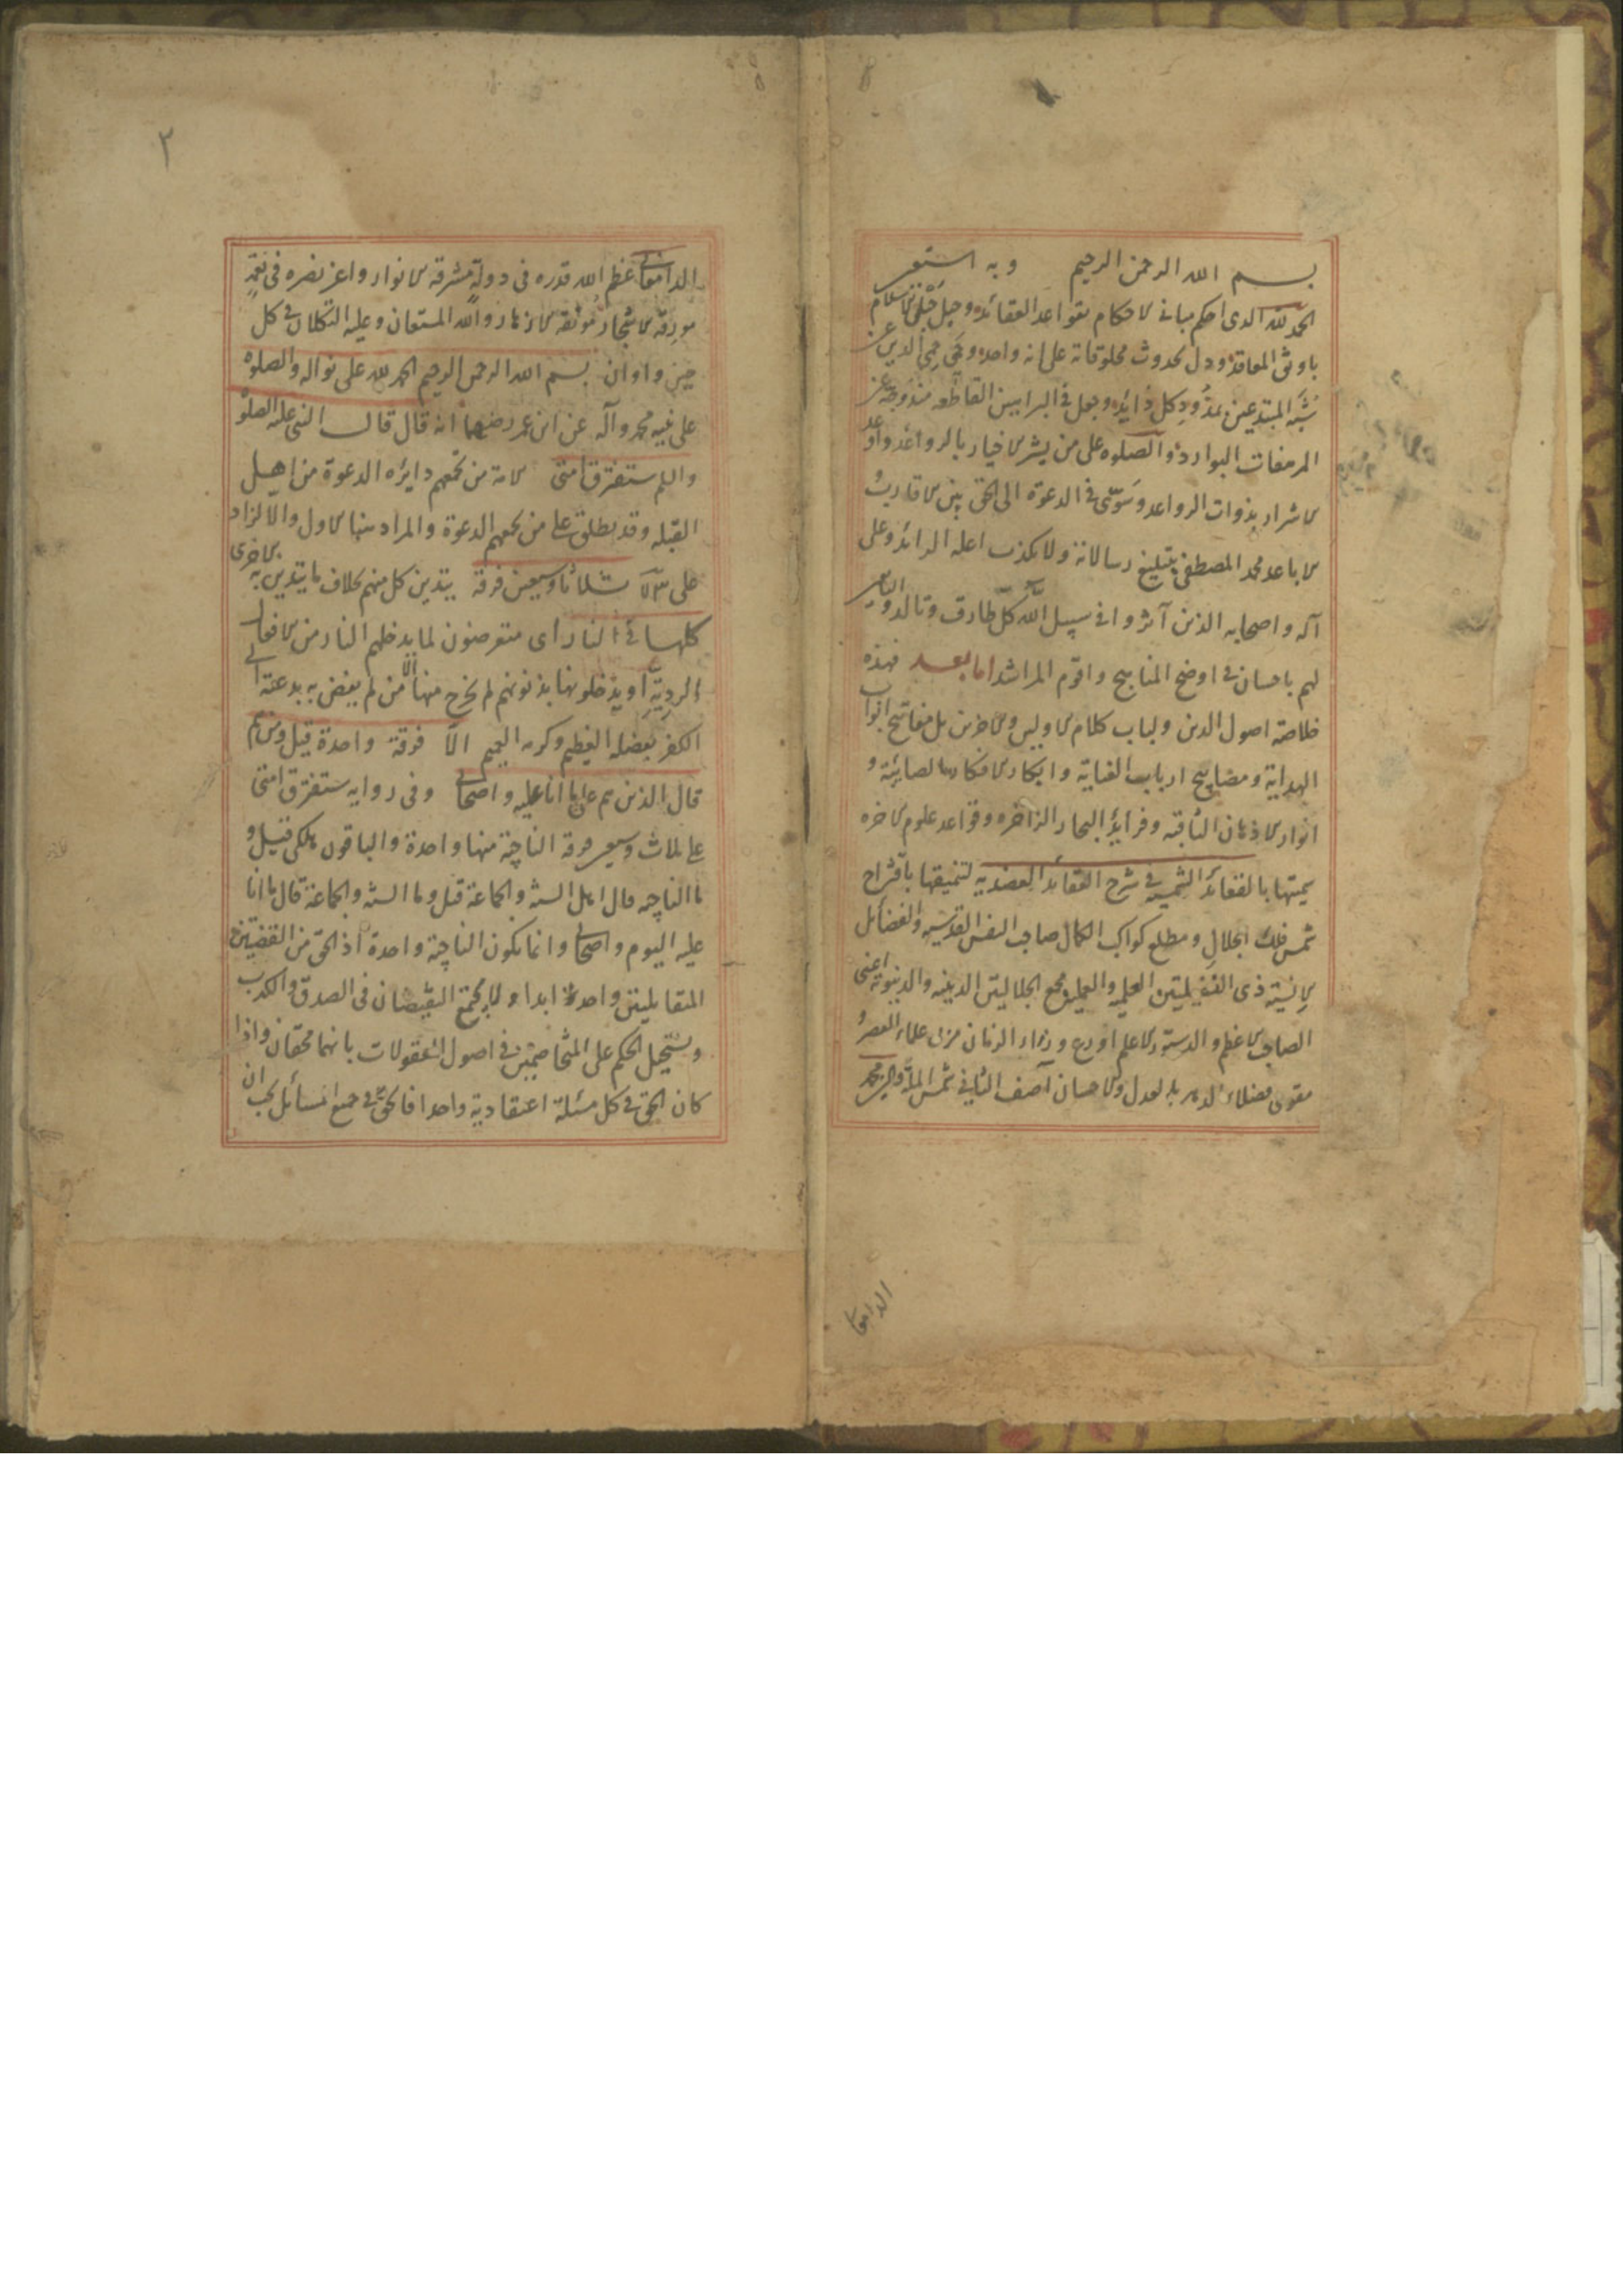 بسم الله الرحمن الرحيم وبه استعين
الحمد لله الذى احكم مبانى الاحكام بقواعد العقائد وجعل الاسلام
باوثق المعاقد ودل بحدوث مخلوقاته على انه واحد وحمى الدين عن
شبه المبتدعين كل وجعل فى البراهين القاطعة
المرهفات البوارد والصلوه على من بشر الاخيار بالرواغد واوعد
الاشرار بذوات الرواعد وسوى فى الدعوة الى الحق بين الاقارب
الاباعد محمد المصطفى بتبليغ رسالاته ولا يكذب اهله الرائد وعلى
آله واصحابه الذين آثروا فى سبيل الله كل طارف وتالد والتابعين
لهم باحسان فى اوضح المناهج واقوم المراشد اما بعد فهذه
خلاصة اصول الدين ولباب كلام الاولين والآخرين بل مفاتيح ابواب
الهداية ومصابيح ارباب العناية وابكار الافكار الصائبة و
انوار الاذهان الثاقبه وفرايد البحار الزاخره وقواعد علوم الآخره
سميتها بالعقائد الشمسية فى شرح العقائد العضديه لتنميقها باقتراح
شمس فلك الجلال ومطلع كواكب الكمال صاحب النفس القدسيه والفضائل
الانسية ذى الفضيلتين العلمية والعملية مجمع الجلالتين الدينيه والدنيويه اعنى
الصاحب الاعظم والدستور الاعلم اورع وزراء الزمان مربى علماء العصر و
مقوى فضلاء الدهر بالعدل والاحسان آصف الثانى شمس الملة والدين محمد
الدامغانى
٢
الدامغانى عظم الله قدره فى دولة مشرقة الانوار واعز نصره فى نعمة
مورقة الاشجار مونقة الازهار والله المستعان وعليه التكلان فى كل
حين واوان بسم الله الرحمن الرحيم الحمد لله على نواله والصلوه
على نبيه محمد وآله عن ابن عمر رضى عنهما انه قال قال النبى عليه الصلوة
والسلم ستفترق امتى الامة من تجمعهم دايره الدعوة من اهل
القبله وقد يطلق على من تجمعهم الدعوة والمراد هنا الاول والا لزاد
على ثلاثا وسبعين فرقة يتدين كل منهم بخلاف ما يتدين به الاخرى
كلها فى النار اى متعرضون لما يدخلهم النار من الافعال
الرديّة او يدخلونها بذنوبهم ثم يخرج منها من لم يفض به بدعته الى
الكفر بفضله العظيم وكرمه العميم الّا فرقة واحدة قيل ومن هم
قال الذين هم على ما انا عليه واصحابى وفى روايه ستفترق امتى
على ثلاث وسبعين فرقه الناجية منها واحدة والباقون هلكى قيل و
ما الناجيه قال اهل السنة والجماعة قيل وما السنة والجماعة قال ما انا
عليه اليوم واصحابى وانما يكون الناجية واحدة اذ الحق من القضيتين
المتقابلتين واحدة ابدا ولا يجتمع النقيضان فى الصدق والكذب
ويستحيل الحكم على المتخاصمين فى اصول المعقولات بانهما محقان واذا
كان الحق فى كل مسئلة اعتقادية واحدا فالحق فى جميع المسائل يجب ان